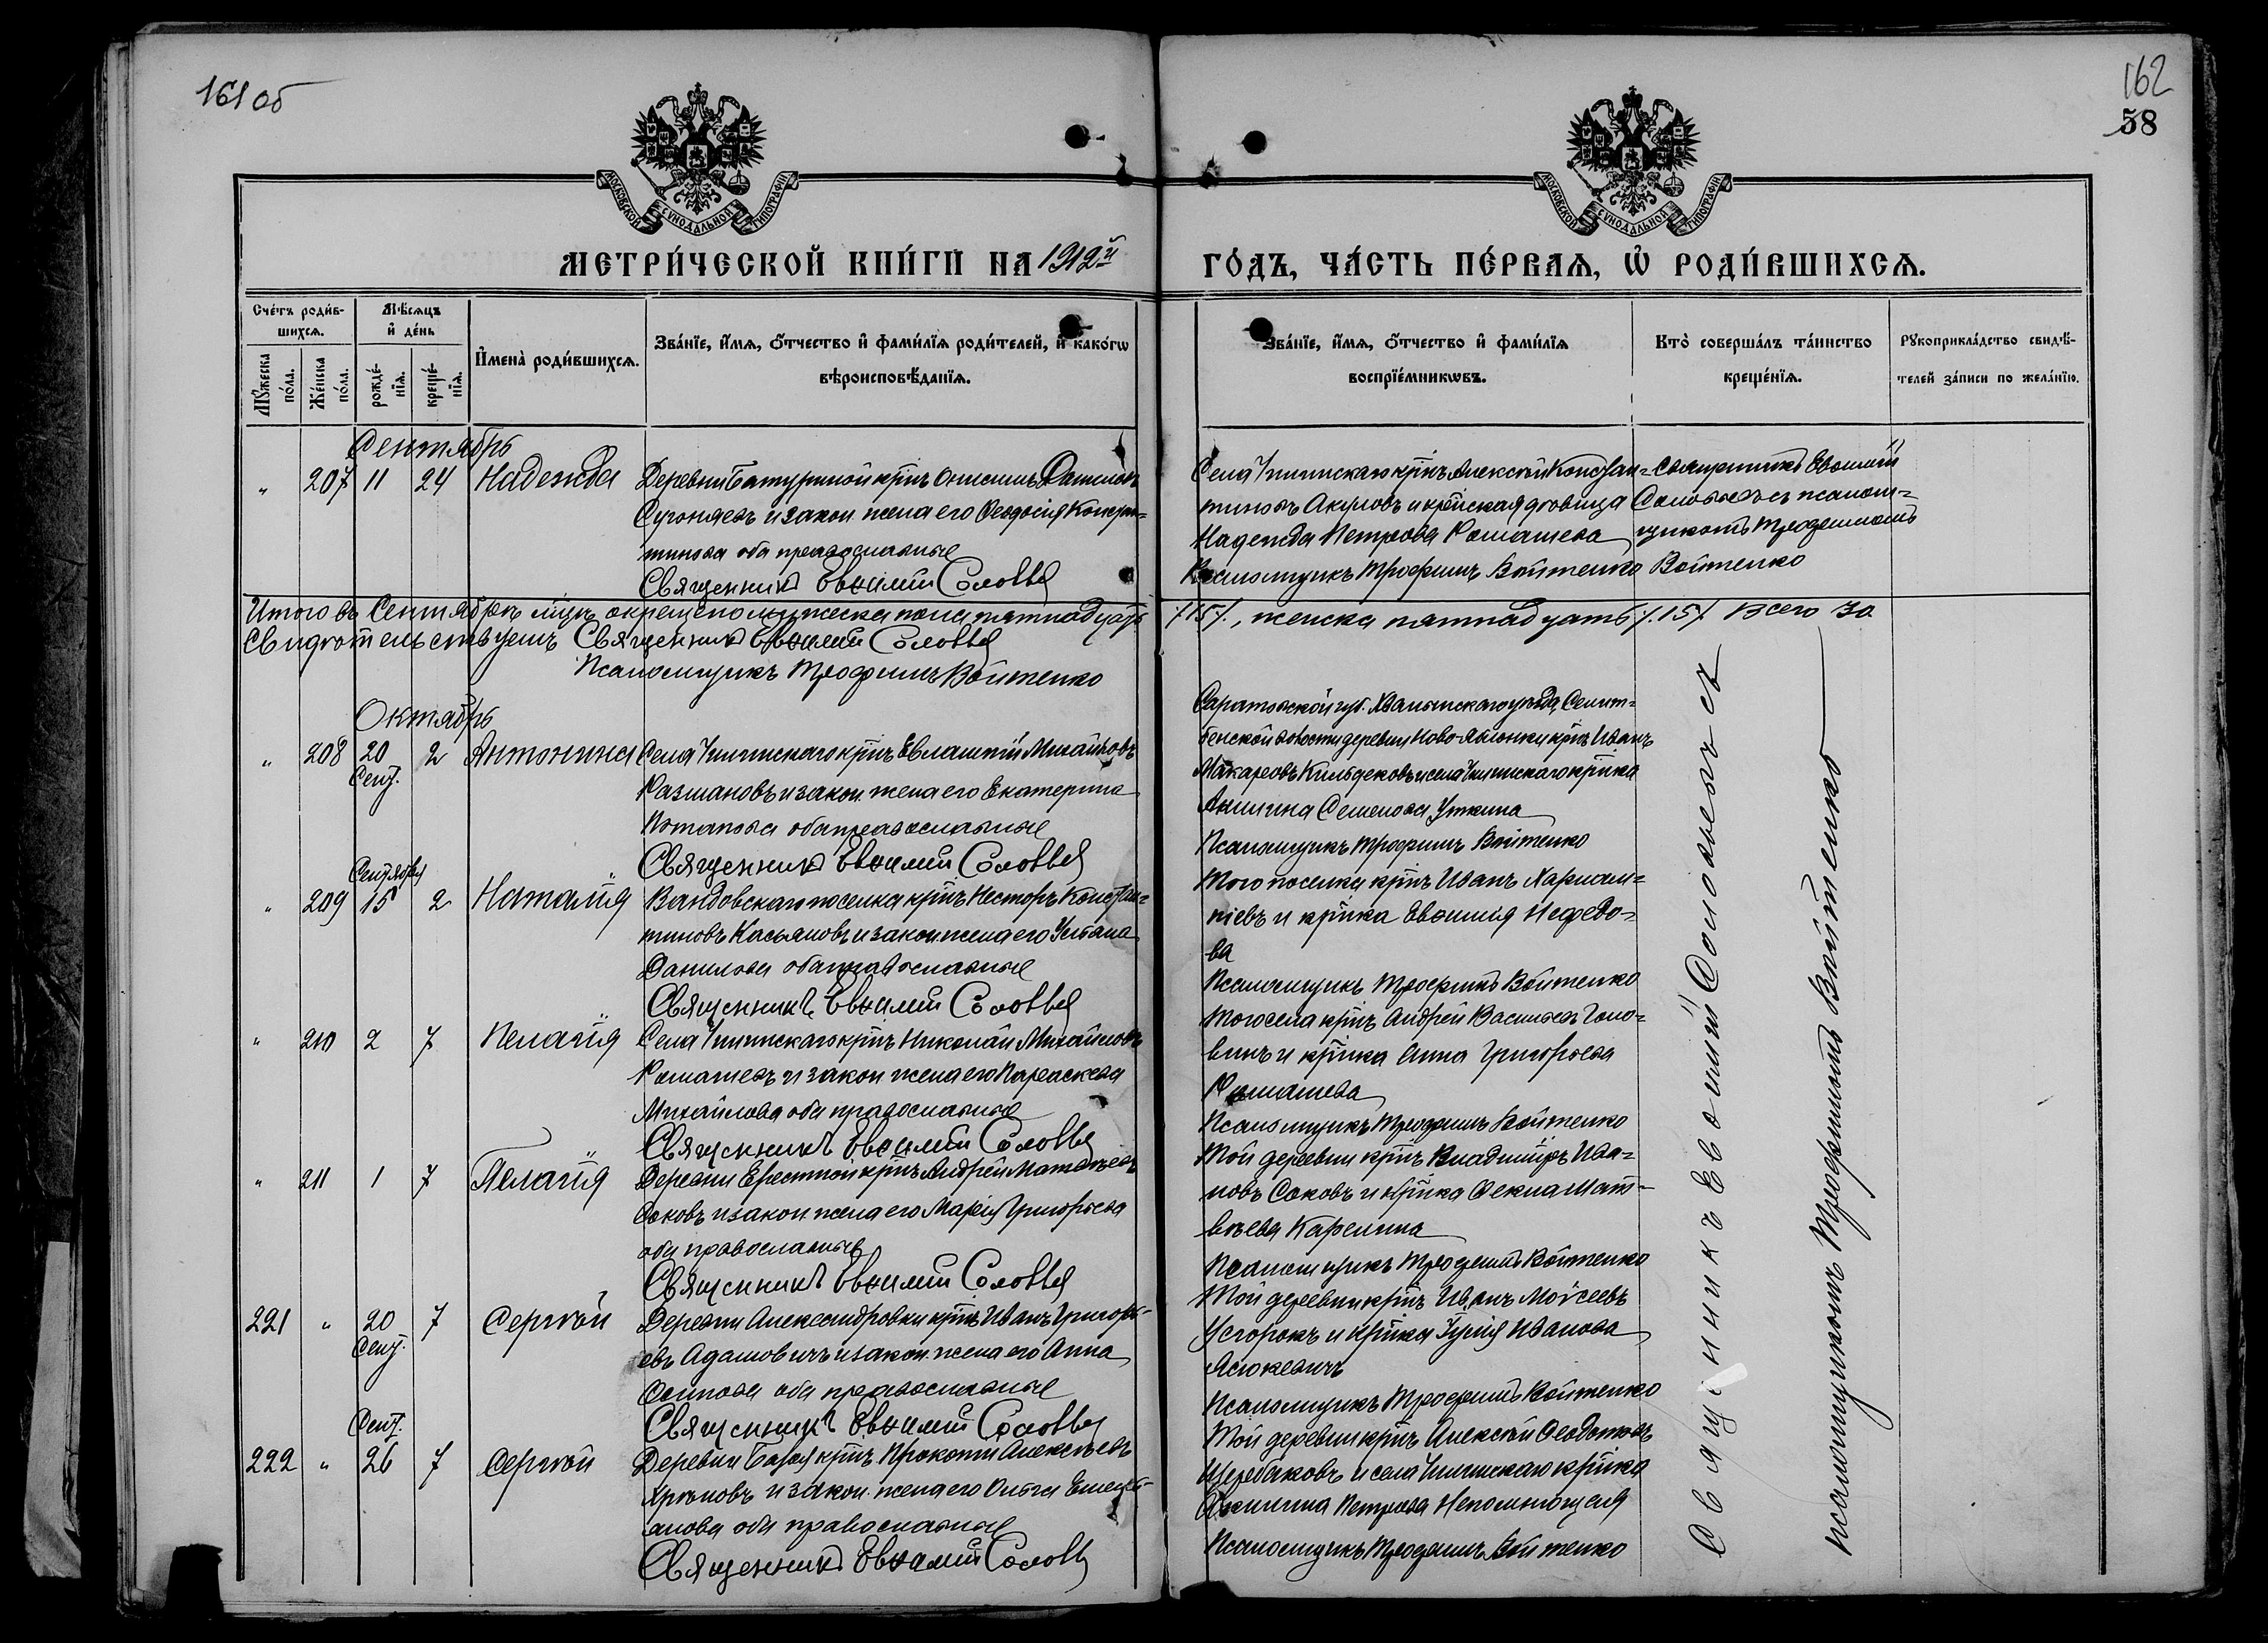 161 об
162
58
МОСКОВСКОЙ СУНОДАЛЬНОЙ ТИПОГРАФІИ
МОСКОВСКОЙ СУНОДАЛЬНОЙ ТИПОГРАФІИ
МЕТРИ́ЧЕСКОЙ КНИ́ГИ НА 1912й
ГО́ДЪ, ЧА́СТЬ ПЕ́РВАѦ, Ѡ҆ РОДИ́ВШИХСѦ.
Сче́тъ роди́в-
шихсѧ.
Мꙋ́жеска по́ла.
Же́нска по́ла.
Мѣ́сѧцъ
и҆ де́нь
рожде́-
нїѧ.
креще́-
нїѧ.
И҆мена̀ роди́вшихсѧ.
Зва́нїе, и҆́мѧ, ѻ҆́тчество и҆ фами́лїѧ роди́телей, и҆ како́гѡ
вѣроисповѣ́данїѧ.
Зва́нїе, и҆́мѧ, ѻ҆́тчество и҆ фами́лїѧ
воспрїе́мникѡвъ.
Кто̀ соверша́лъ та́инство
креще́нїѧ.
Рꙋкоприкла́дство свидѣ́-
телей за́писи по жела́нїю.
Сентябрь
" 207 11 24 Надежда
Деревни Батуриной крнъ Онисимъ Данилов
и закон. жена его Ѳеодосія Констан-
тинова оба православные
Священникъ Евѳимій Соловьев
Села крнъ Алексѣй Констан-
тиновъ Акуловъ и крестьянская дѣвица
Надежда Петрова Ромашева
Псаломщикъ Трофимъ Войтенко
Священникъ Евѳимій
Соловьевъ съ псалом-
щикомъ Трофимомъ
Войтенко
Итого въ Сентябрѣ мцѣ окрещено мужеска пола пятнадцать
/15/, женска пятнадцать /15/ Всего 30
Свидѣтельствуемъ Священникъ Евѳимій Соловьев
Псаломщикъ Трофимъ Войтенко
Октябрь
" 208 20 Сент. 2 Антонина
Села крнъ Евлампій Михайловъ
Размановъ и закон. жена его Екатерина
Потапова оба православные
Священникъ Евѳимій Соловьев
Саратовской губ. Хвалынскаго уѣзда,
волости деревни Ново-Яблонки крнъ Иванъ
Макаровъ Кильдековъ и села крнка
Акилина Семенова Уткина
Псаломщикъ Трофимъ Войтенко
" 209 Сентября 15 2 Наталія
поселка крнъ Несторъ Констан-
тиновъ Касьяновъ и закон. жена его Устина
Данилова оба православные
Священникъ Евѳимій Соловьев
Того поселка крнъ Иванъ Харлам-
піевъ и крнка Евѳимія Нефедо-
ва
Псаломщикъ Трофимъ Войтенко
" 210 2 7 Пелагія
Села крнъ Николай Михайловъ
Ромашевъ и закон жена его Параскева
Михайлова оба православные
Священникъ Евѳимій Соловьев
Того села крнъ Андрей Васильевъ Голо-
винъ и крнка Анна Григорьева
Ромашева
Псаломщикъ Трофимъ Войтенко
" 211 1 7 Пелагія
Деревни крнъ Андрей Матвѣевъ
Соковъ и закон жена его Марія Григорьева
оба православные
Священникъ Евѳимій Соловьев
Той деревни крнъ Владиміръ Ива-
новъ Соковъ и крнка Ѳекла Мат-
вѣева Карелина
Псаломщикъ Трофимъ Войтенко
221 " 20 Сент. 7 Сергѣй
Деревни Александровки крнъ Иванъ Григорь-
евъ Адамовичъ и закон. жена его Анна
Осипова оба православные
Священникъ Евѳимій Соловьев
Той деревни крнъ Иванъ Моѵсеевъ
и крнка Іулія Иванова
Псаломщикъ Трофимъ Войтенко
222 " Сент. 26 7 Сергѣй
Деревни крнъ Прокопій Алексѣевъ
и закон. жена его Ольга Емель-
янова оба православные
Священникъ Евѳимій Соловьев
Той деревни крнъ Алексѣй Ѳеодотовъ
Щербаковъ и села крнка
Акилина Петрова Непомнющая
Псаломщикъ Трофимъ Войтенко
Священникъ Евѳимій Соловьевъ съ
псаломщикомъ Трофимомъ Войтенко